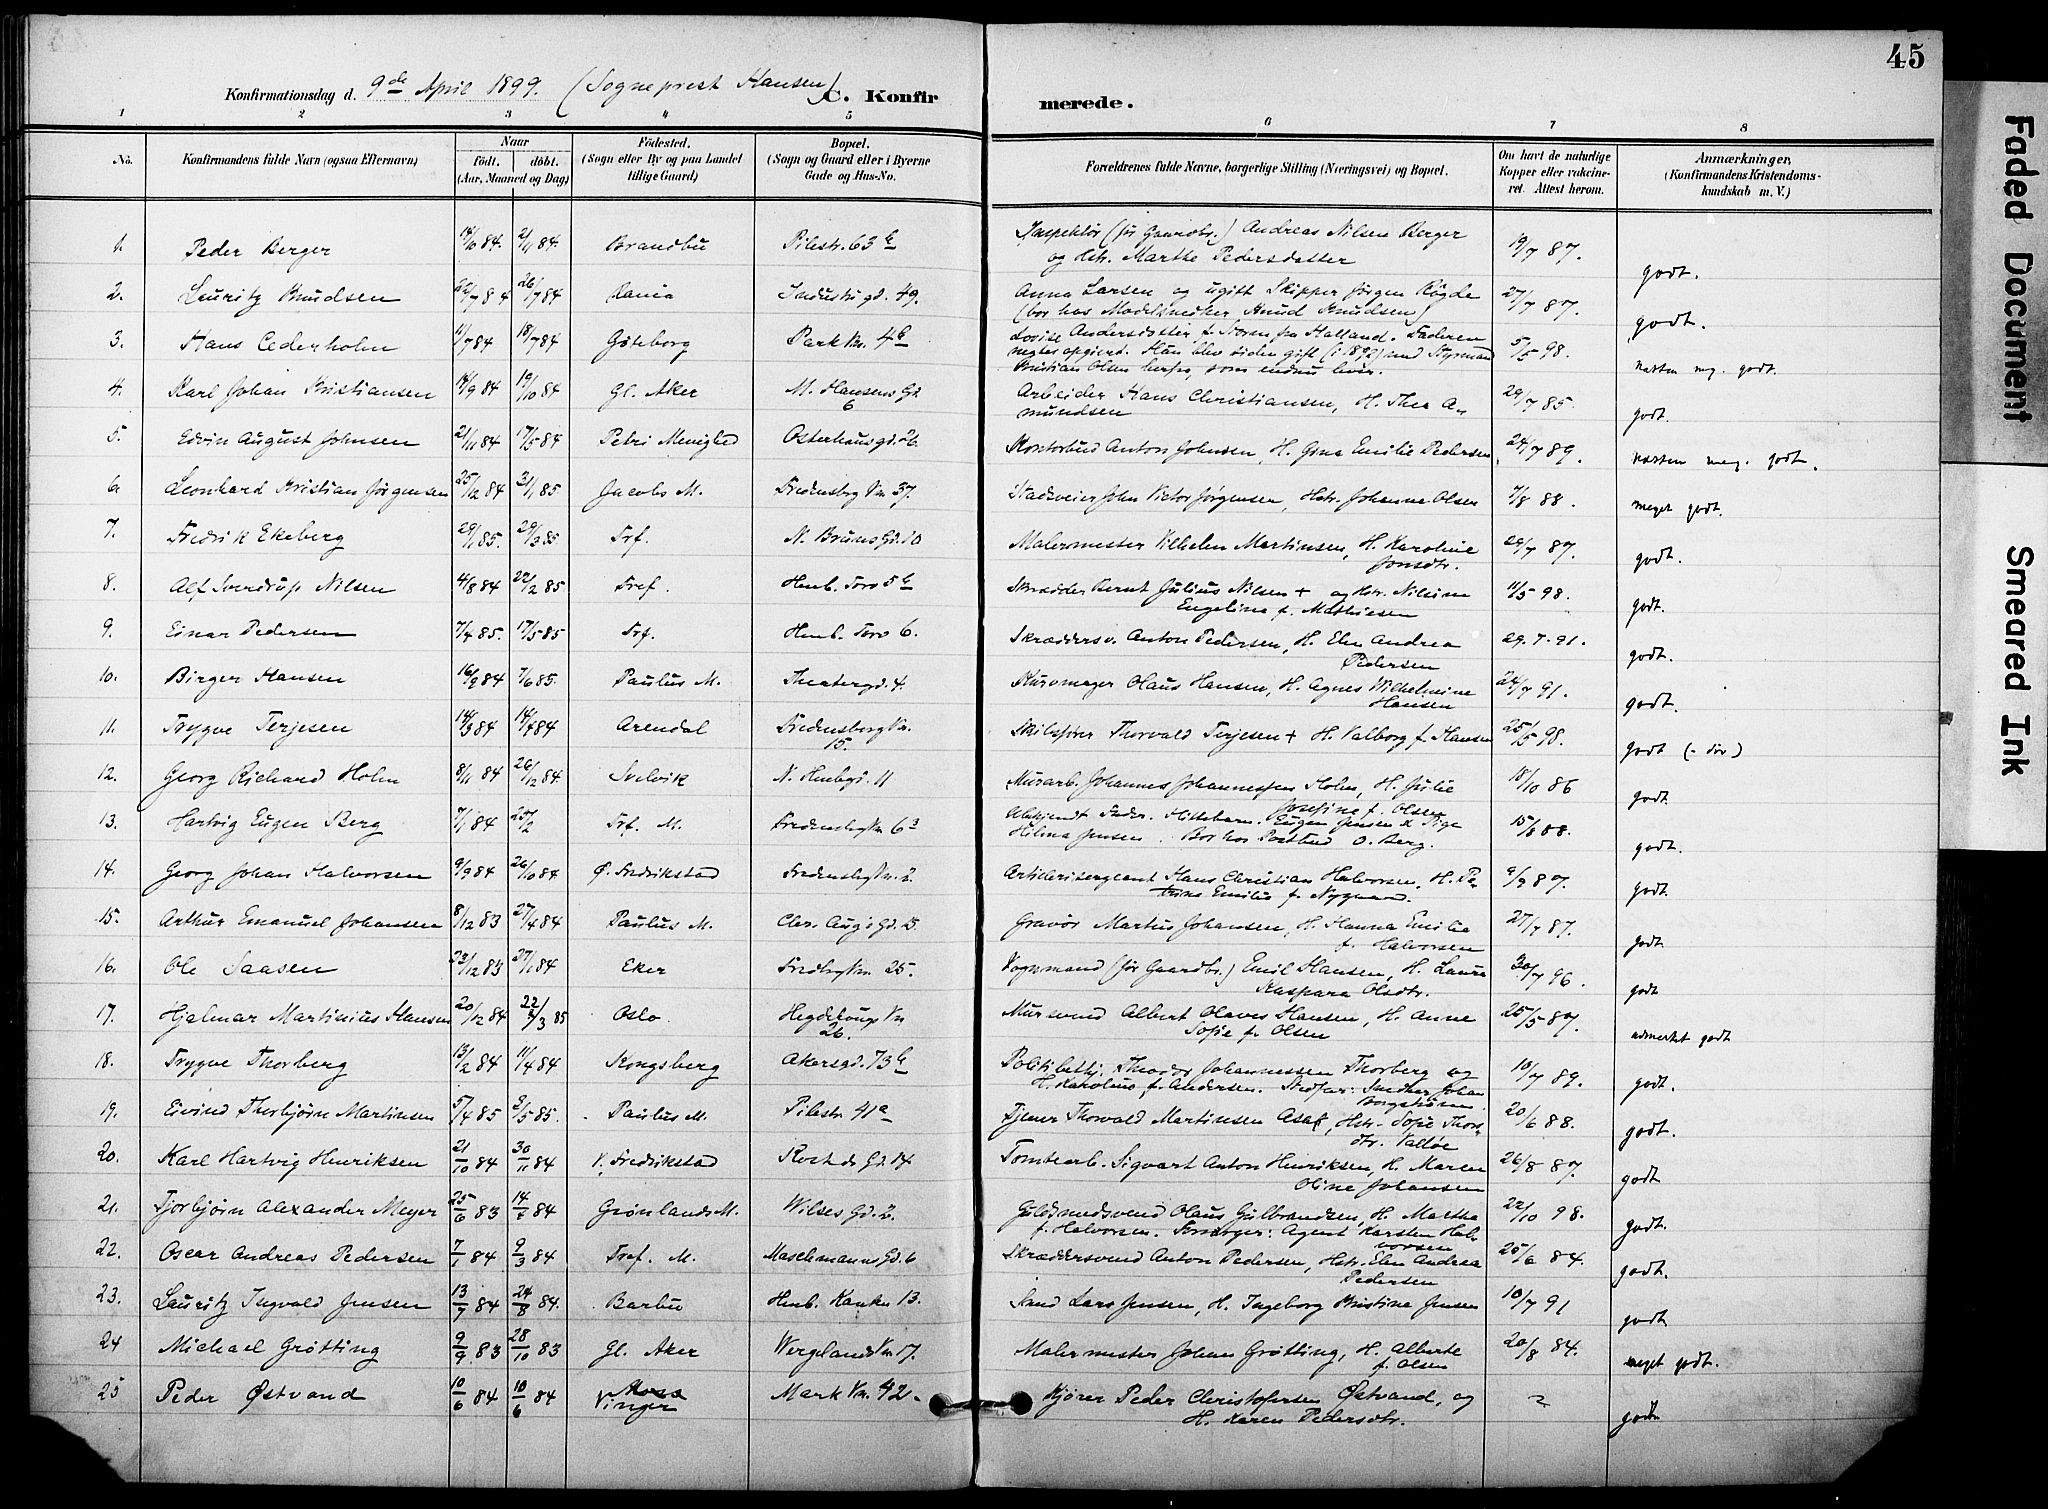 45
Konfirmationsdag d. 9de April 1899. (Sogneprest Hansen) C. Konfirmerede.
1 2 3 4 5 6 7 8
No. Konfirmandens fulde Navn (ogsaa Efternavn) Naar født. døbt. (Aar, Maaned og Dag) Fødested. (Sogn eller By og paa Landet tillige Gaard) Bopæl. (Sogn og Gaard eller i Byerne Gade og Hus-No. Forældrenes fulde Navne, borgerlige Stilling (Næringsvei) og Bopæl. Om havt de naturlige Kopper eller vakcineret. Attest herom. Anmærkninger, (Konfirmandens Kristendomskundskab m. V.)
1. Peder Berger 14/10 84 2/11 84. Brandbu Pilestr. 63 b Inspektør (før Gaardbr.) Andreas Nilsen Berger 19/7 87. godt.
og Hstr. Marthe Pedersdatter
2. Lauritz Knudsen 22/7 84 26/7 84 Rania Industrigd. 49. Anna Larsen og ugift Skipper Jørgen Røgde 27/7 87. godt.
(bor hos Modelsnedker Knud Knudsen)
3. Hans Cederholm 11/7 84 18/7 84 Göteborg Parkvn. 4 b Lovise Andersdatter f. Toren fra Halland. Faderen 5/5 98. næsten meg. godt.
negtes opgivet. Han blev siden gift (i 1892) med Styrmand
Kristian Olsen herfra, som endnu lever.
4. Karl Johan Kristiansen 14/9 84 19/10 84 Gl. Aker M. Hansens Gd. 6 Arbeider Hans Christiansen, H. Thea A- 29/7 85. godt.
mundsen
5. Edvin August Johnsen 21/11 84 17/5 84 Petri Menighed Osterhausgd. 26. Kontorbud Anton Johnsen, H. Gina Emilie Pedersen 24/7 89. næsten meg. godt.
6. Leonhard Kristian Jørgensen 25/12 84 3/1 85 Jacobs M. Fredensbg Vn 37. Stadsveier John Victor Jørgensen, Hstr. Johanne Olsen 7/8 88. meget godt.
7. Fredrik Ekeberg 29/1 85. 29/3 85 Trf. N. Bruns Gd. 10 Malermester Vilhelm Martinsen, H. Karoline 29/7 87. godt.
Jonsdtr.
8. Alf Sverdrup Nilsen 4/8 84 22/2 85 Tref. Hmb. Torv 5 b Skrædder Bernt Julius Nilsen + og Hstr. Nilsine 11/5 98. godt.
Engeline f. Mathiesen
9. Einar Pedersen 7/4 85. 17/5 85 Trf. Hmb. Torv 6. Skræddersv. Anton Pedersen, H. Elen Andrea 29.7.91. godt.
Pedersen
10. Birger Hansen 16/9 84 7/6 85. Paulus M. Theatergd. 4. Kurvmager Olaus Hansen, H. Agnes Wilhelmine 24/7 91. godt.
Hansen
11. Trygve Terjesen 14/3 84 14/4 84 Arendal Fredensborgvn. 15. Skibsfører Thorvald Terjesen + H. Valborg f. Hansen 25/5 98. godt (- dør)
12. Georg Richard Holm 8/11 84 26/12 84 Svelvik N. Hmbgd. 11 Murarb. Johannes Johannessen Holm, H. Julie 18/10 86 godt
Josefine f. Olsen
13. Hartvig Eugen Berg 7/1 84 25/2 Trf. M. Fredensbgvn 63 Ubekjendt Fader. Hittebarn. Eugen Jensen & Pige 15/8 88. godt.
Hilma Jensen. Bor hos Postbud O. Berg.
14. Georg Johan Halvorsen 9/9 84 26/10 84 Ø. Fredrikstad Fredensbgvn. 2. Artillerisergeant Hans Christian Halvorsen, H. Pe- 9/9 87. godt
trine Emilie f. Nygaard.
15. Arthur Emanuel Johansen 8/12 83 27/4 84 Paulus M. Chr. Aug's Gd. 15. Gravør Martin Johansen, H. Hanna Emilie 27/7 87. godt
f. Halvorsen
16. Ole Saasen 22/12 83 27/1 84 Eker Fredbgvn 25. Vognmand (før Gaardbr.) Emil Hansen, H. Laura 30/7 96. godt
Kaspara Olsdtr.
17. Hjalmar Martinius Hansen 20/12 84 22/3 85 Oslo Hegdehaugs Vn 26. Mursvend Albert Olaves Hansen, H. Anne 25/5 87. udmerket godt
Sofie f. Olsen
18. Trygve Thorberg 13/2 84 11/4 84 Kongsberg Akersgd. 73 b Politibetj. Theodor Johannessen Thorberg og 10/7 89. godt.
H. Karoline f. Andersen. Stedfar: Snedker Johan
Borgstrøm.
19. Eivind Thorbjørn Martinsen 5/4 85 3/5 85. Paulus M. Pilestr 41 a Tjener Thorvald Martinsen Asak, Hstr. Sofie Thors- 20/6 88. godt.
dtr. Valløe
20. Karl Hartvig Henriksen 21/10 84 30/11 84 V. Fredrikstad Rosteds Gd. 14 Tomtearb. Sigvart Anton Henriksen, H. Maren 26/8 87. godt
Oline Johansen
21. Tjorbjørn Alexander Meyer 25/6 83 14/7 84 Grønlands M. Wilses Gd. 2. Guldsmedsvend Olaus Gulbrandsen, H. Martha 22/10 98. godt.
f. Halvorsen. Forsørger: Agent Karsten Hal-
vorsen
22. Oscar Andreas Pedersen 7/1 84 9/3 84 Tref. M. Maschmanns Gd. 6 Skræddersvend Anton Pedersen, Hstr. Elen Andrea 25/6 84. godt.
Pedersen
23. Lauritz Ingvald Jensen 13/7 84 24/8 84. Barbu Hmb. Kankn 13. Smed Lars Jensen, H. Ingeborg Kristine Jensen 10/7 91 godt
24 Michael Grøtting 9/9 83 28/10 83 Gl. Aker Wergelands Vn 17. Malermester Johan Grøtting, H. Alberte 20/8 84. meget godt.
f. Olsen
25 Peder Østvand 10/6 84 10/6 84 Moss Vinger Mark Vn. 42. Kjører Peder Christofersen Østvand, og ? godt
H. Karen Pedersdtr.
Faded Document
Smeared Ink